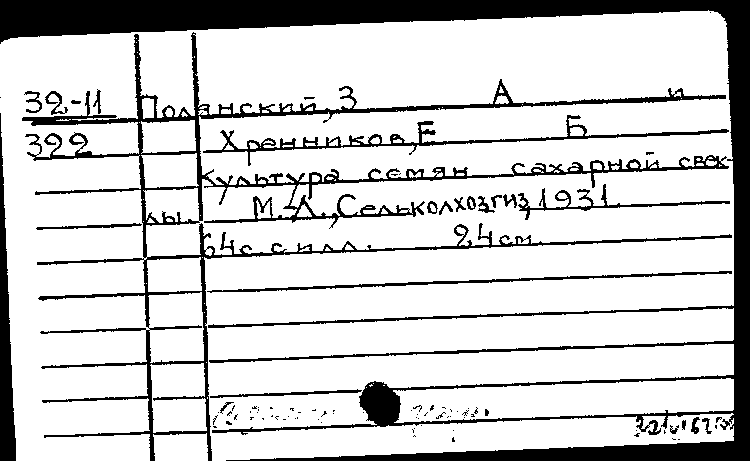 32-11 Полянский, З А и
322 Хренников, Е Б
Культура семян сахарной свек-
лы. М.-Л., Сельколхозгиз, 1931.
64с с илл. 24см.